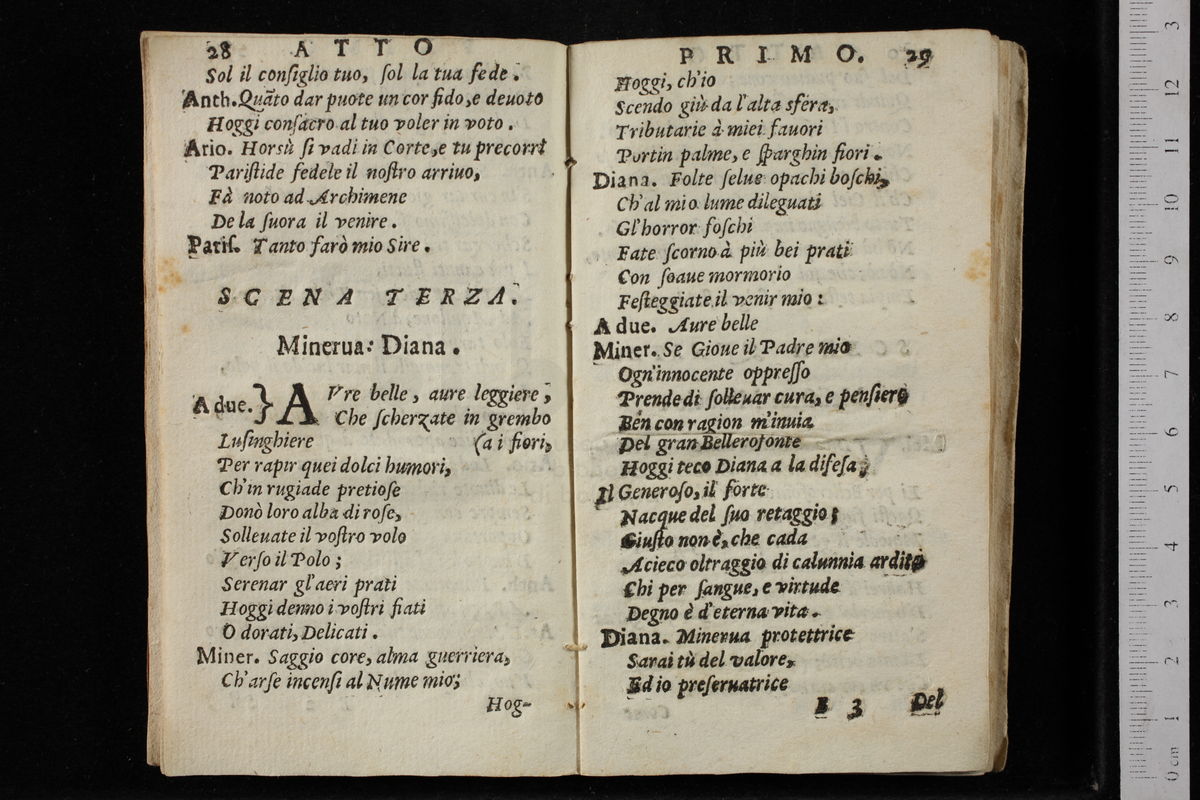 28 ATTO
Sol il conſiglio tuo, ſol la tua fede.
Anth. Quãto dar puote un cor fido, e deuoto
Hoggi conſacro al tuo voler in voto.
Ario. Horsù ſi vadi in Corte, e tu precorri
Pariſtide fedele il noſtro arriuo,
Fà noto ad Archimene
De la ſuora il venire.
Pariſ. Tanto farò mio Sire.
SCENA TERZA.
Minerua: Diana.
A due. } AVre belle, aure leggiere,
Che ſcherzate in grembo
Luſinghiere (a i fiori,
Per rapir quei dolci humori,
Ch'in rugiade pretioſe
Donò loro alba di roſe,
Solleuate il voſtro volo
Verſo il Polo;
Serenar gl'aeri prati
Hoggi denno i voſtri fiati
O dorati, Delicati.
Miner. Saggio core, alma guerriera,
Ch'arſe incenſi al Nume mio;
Hog-
PRIMO. 29
Hoggi, ch'io
Scendo giù da l'alta sfera,
Tributarie à miei fauori
Portin palme, e ſparghin fiori.
Diana. Folte ſelue opachi boſchi,
Ch'al mio lume dileguati
Gl'horror foſchi
Fate ſcorno à più bei prati
Con ſoaue mormorio
Feſteggiate il venir mio:
A due. Aure belle
Miner. Se Gioue il Padre mio
Ogn'innocente oppreſſo
Prende di ſolleuar cura, e penſiero
Ben con ragion m'inuia
Del gran Belleroſonte
Hoggi teco Diana a la difeſa;
Il Generoſo, il forte
Nacque del ſuo retaggio;
Giuſto non è, che cada
A cieco oltraggio di calunnia ardito
Chi per ſangue, e virtude
Degno è d'eterna vita.
Diana. Minerua protettrice
Sarai tù del valore,
Ed io preſeruatrice
B 3 Del